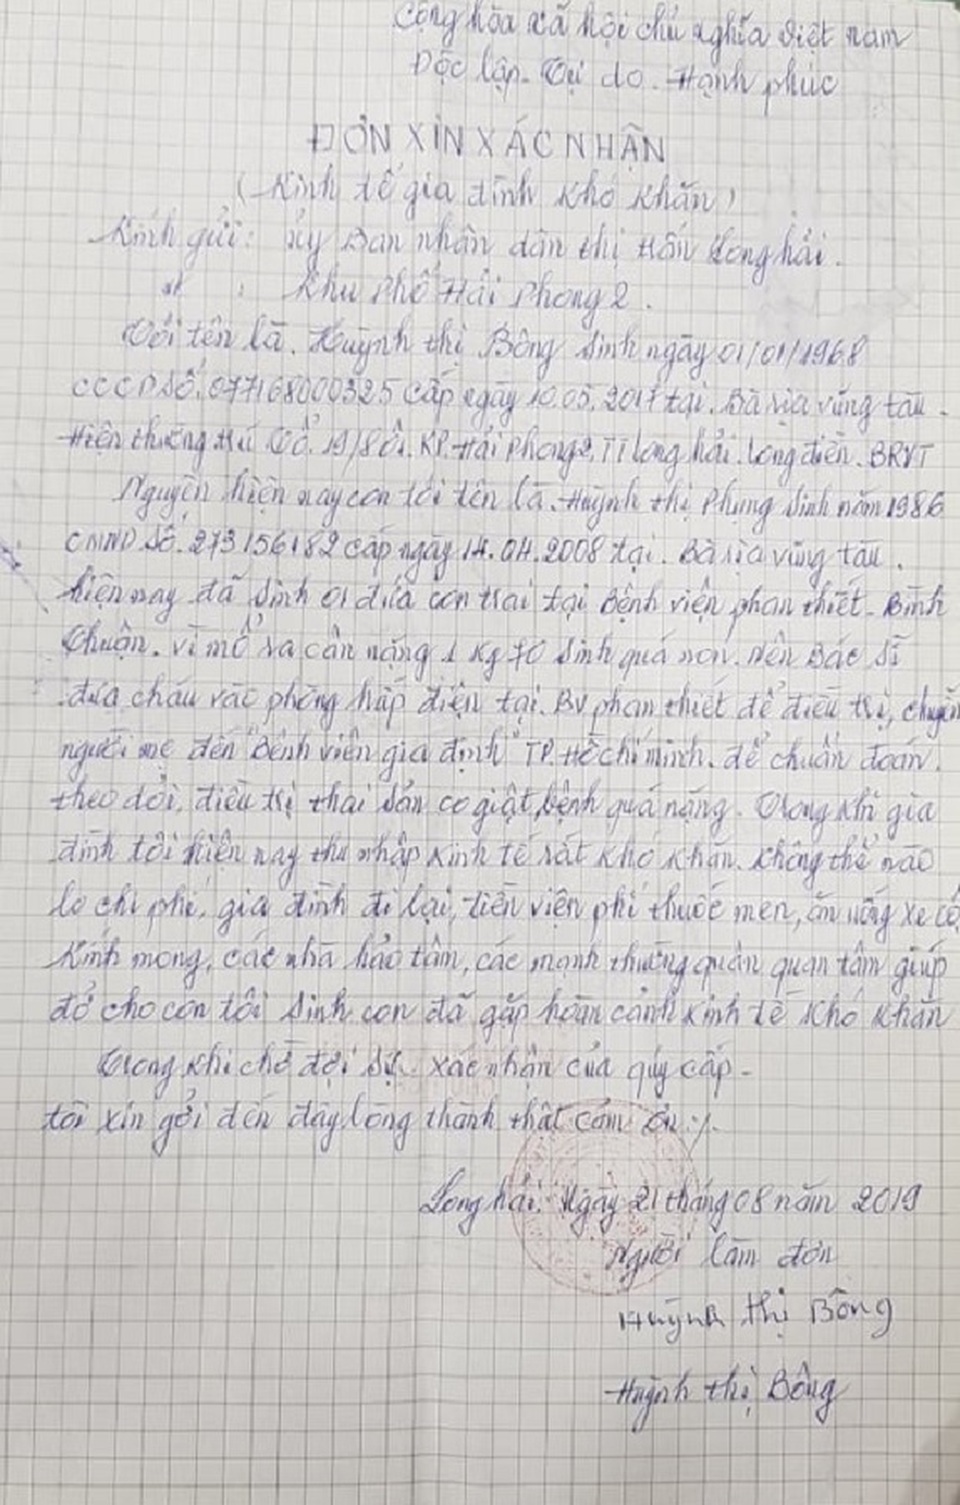 Cộng hòa xã hội chủ nghĩa Việt nam
Độc lập - Tự do - Hạnh phúc
ĐƠN XIN XÁC NHẬN
(Kinh tế gia đình khó khăn)
Kính gửi: Ủy Ban nhân dân thị trấn Long hải.
" : Khu Phố Hải Phong 2.
Tôi tên là. Huỳnh thị Bông sinh ngày 01/01/1968
CCCD số: 077168000325 cấp ngày 10.05.2017 tại. Bà rịa vũng tàu.
Hiện thường trú Tổ. 19/8 ôi. KP. Hải Phong2, TT long hải. long điền. BRVT
Nguyên hiện nay con tôi tên là. Huỳnh thị Phụng sinh năm 1986
CMND số. 273156182 cấp ngày 14.04.2008 tại. Bà rịa vũng tàu.
hiện nay đã sinh 01 đứa con trai tại Bệnh viện phan thiết - Bình
Thuận. vì mổ ra cân nặng 1 kg 70 sinh quá non. nên Bác sĩ
đưa cháu vào phòng hấp điện tại. BV phan thiết để điều trị, chuyển
người mẹ đến "Bệnh viện gia định" TP. Hồ chí minh. để chuẩn đoán.
theo dõi, điều trị thai sản co giật, bệnh quá nặng. Trong khi gia
đình tôi hiện nay thu nhập kinh tế rất khó khăn. không thể nào
lo chi phí, gia đình đi lại, tiền viện phí thuốc men, ăn uống xe cộ
Kính mong, các nhà hảo tâm, các mạnh thường quân quan tâm giúp
đở cho con tôi sinh con đã gặp hoàn cảnh kinh tế khó khăn
Trong khi chờ đợi sự. xác nhận của qúy cấp -
tôi xin gởi đến đây lòng thành thật cám ơn ./.
Long hải. Ngày 21 tháng 08 năm 2019
Người làm đơn
Huỳnh thị Bông
Huỳnh thị Bông